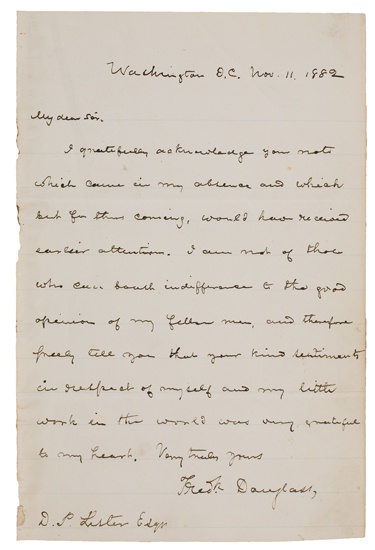 Washington D.C. Nov. 11. 1882
My dear Sir.
I gratefully acknowledge your note
which came in my absence and which
but for thus coming, would have received
earlier attention. I am not of those
who can boast indifference to the good
opinion of my fellow men, and therefore
freely tell you that your kind sentiments
in respect of myself and my little
work in the world was very grateful
to my heart. Very truly yours
Fredk Douglass,
D. P. Lester Esqr